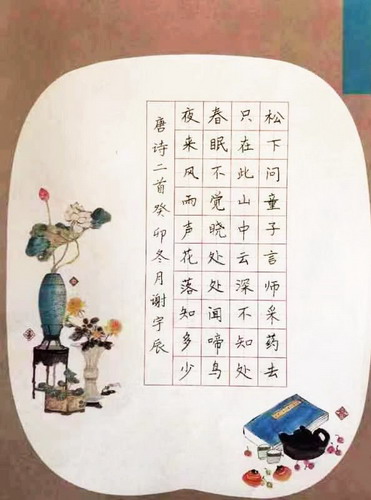 松下问童子言师采药去
只在此山中云深不知处
春眠不觉晓处处闻啼鸟
夜来风雨声花落知多少
唐诗二首癸卯冬月谢宇辰